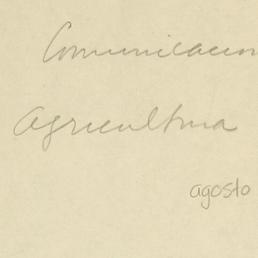 Comunicacion
Agricultura
agosto